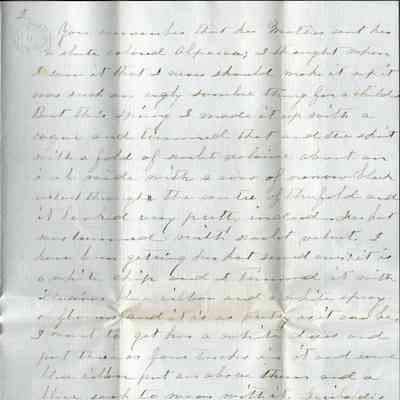 You remember that her Mattie sent her
a slate colored Alpacca; I thought when
I saw it that I never should make it up it
was such an ugly somber thing for a child
But this spring I made it up with a
sacque and trimmed that and the skirt
with a fold of scarlet about an
inch wide with a row of narrow black
velvet through the centre of the fold and
it looked very pretty indeed. her hat
was trimmed with scarlet velvet. I
have been getting her hat it is
a white and I trimmed it with
blue ribbon and a white spray
of flowers and it is as pretty as it can be
I want to get her a white dress and
put three or four tucks in it and some
blue ribbon put in above them and a
blue sash to wear with it.